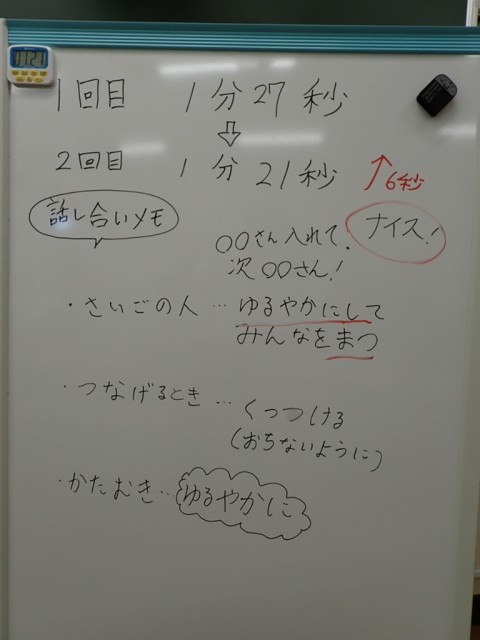 11:21
1回目 1分27秒
⇩
2回目 1分21秒 ↑6秒
話し合いメモ
○○さん入れて、 ナイス!
次○○さん!
・さいごの人…ゆるやかにして
みんなをまつ
・つなげるとき…くっつける
(おちないように)
・かたむき…ゆるやかに